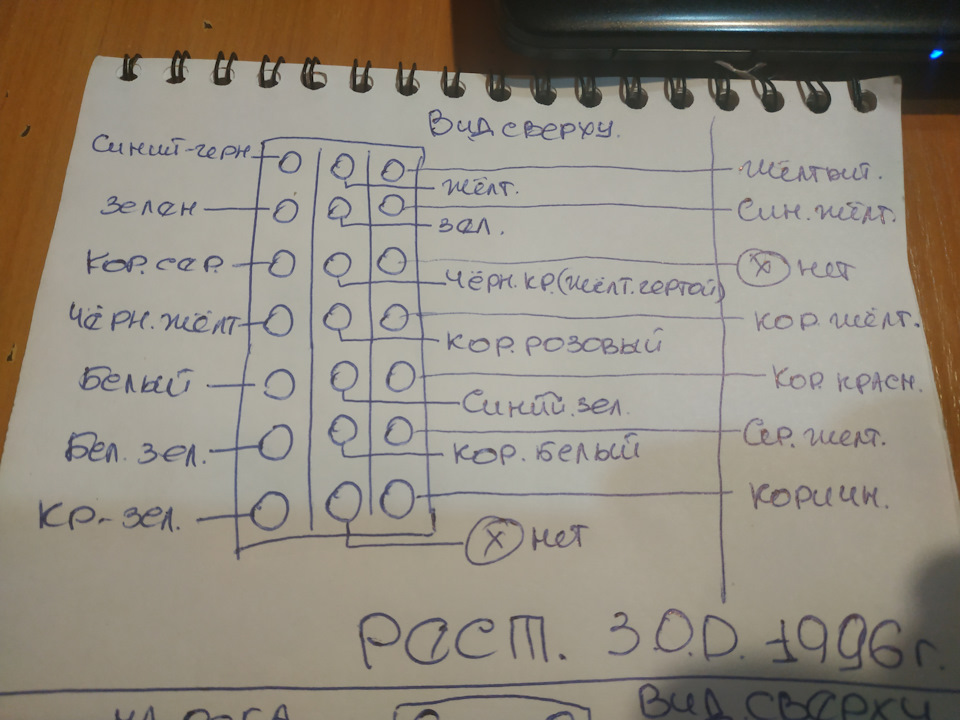 Вид сверху.
Синий-черн
Жёлтый.
жёлт.
Зелен
Син. жёлт.
зел.
Кор. сер.
нет
Чёрн. кр. (жёлт. чертой)
Чёрн. жёлт
кор. жёлт.
кор. розовый
Белый
кор красн.
Синий. зел.
Бел. зел.
Сер. желт.
кор. белый
Кр-зел.
коричн.
нет
РЕСТ. 3.0.D. 1996г.
Вид сверху